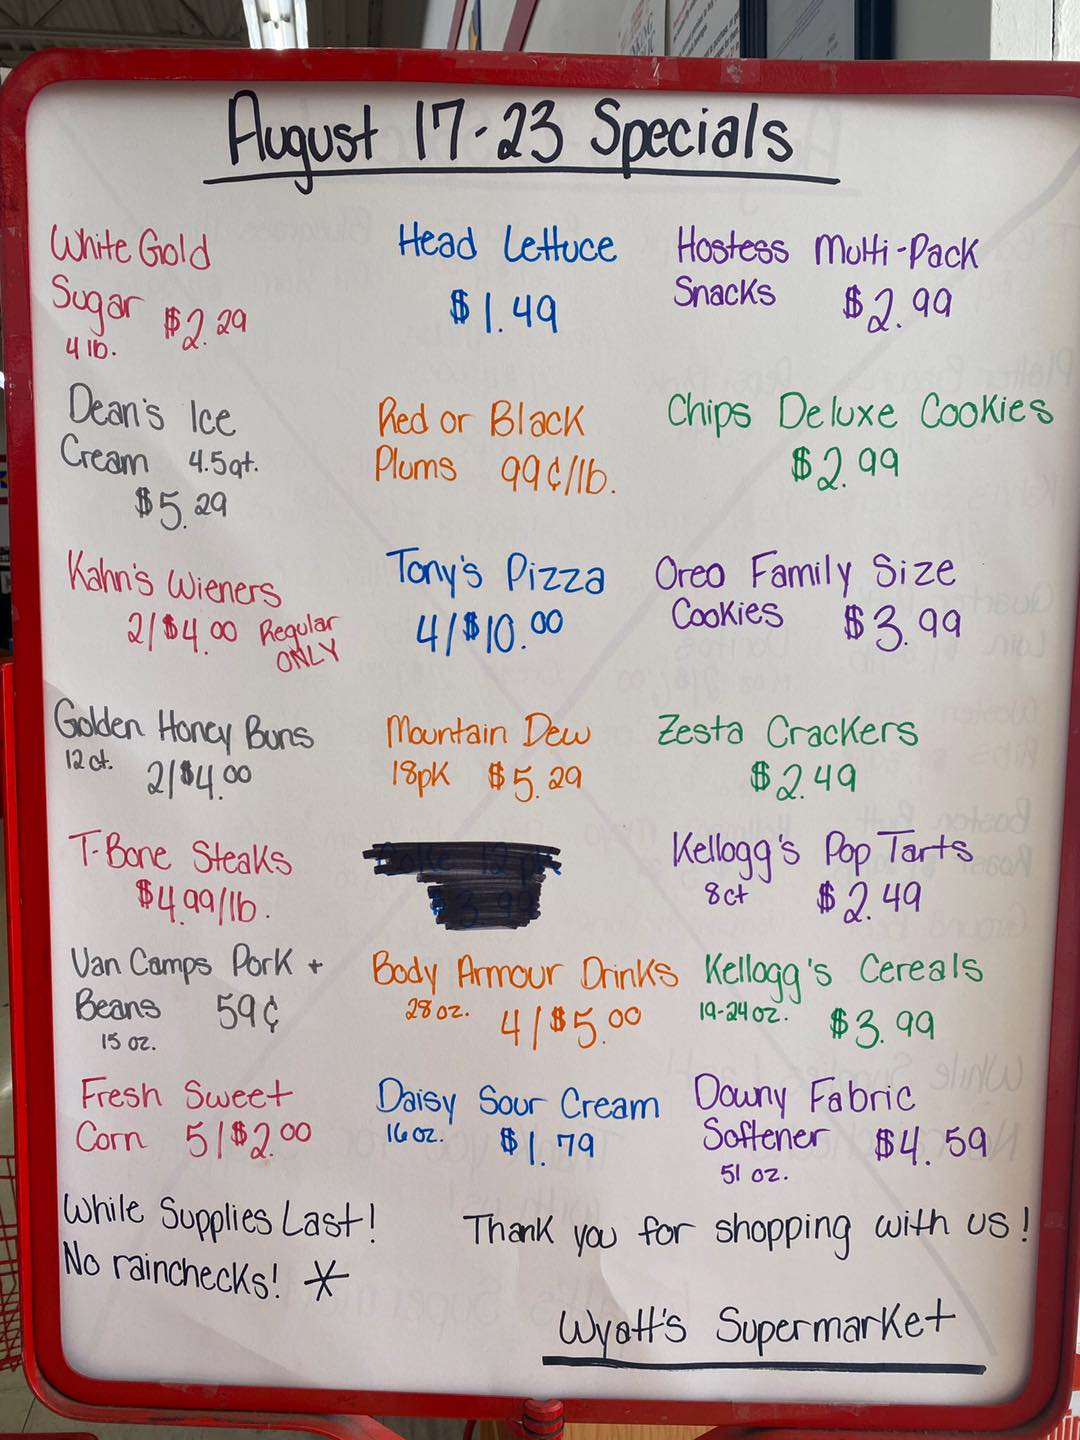 August 17-23 Specials
White Gold
Sugar $2.29
4 lb.
Head Lettuce
$1.49
Hostess Multi-Pack
Snacks $2.99
Dean's Ice
Cream 4.5qt.
$5.29
Red or Black
Plums 99¢/lb.
Chips Deluxe Cookies
$2.99
Kahn's Wieners
2/$4.00 Regular
ONLY
Tony's Pizza
4/$10.00
Oreo Family Size
Cookies $3.99
Golden Honey Buns
12 ct. 2/$4.00
Mountain Dew
18pk $5.29
Zesta Crackers
$2.49
T-Bone Steaks
$4.99/lb.
Coke 12 pk
$3.99
Kellogg's Pop Tarts
8ct $2.49
Van Camps Pork +
Beans 59¢
15 oz.
Body Armour Drinks
28 oz. 4/$5.00
Kellogg's Cereals
19-24 oz. $3.99
Fresh Sweet
Corn 5/$2.00
Daisy Sour Cream
16 oz. $1.79
Downy Fabric
Softener $4.59
51 oz.
While Supplies Last!
No rainchecks! *
Thank you for shopping with us!
Wyatt's Supermarket